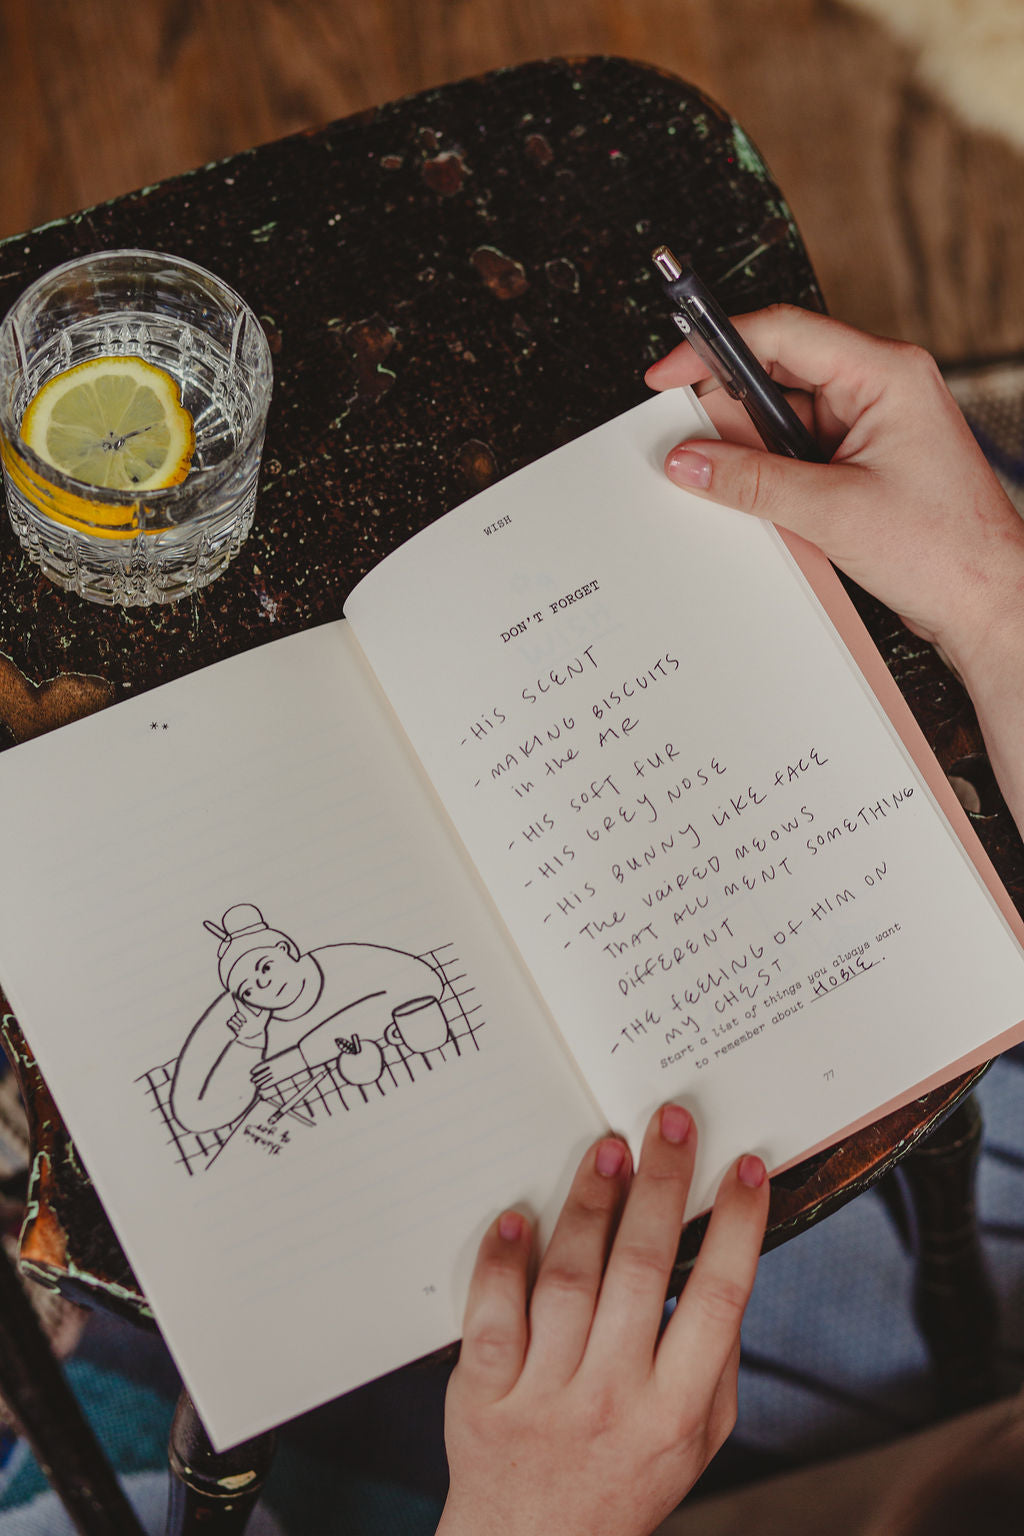 **
thinking
of you
76
WISH
DON'T FORGET
- HIS SCENT
- MAKING BISCUITS
in the AIR
- HIS SOFT FUR
- HIS GREY NOSE
- HIS BUNNY LIKE FACE
- The VAIRED MEOWS
THAT ALL MENT SOMETHING
DIFFERENT
- THE FEELING OF HIM ON
MY CHEST
Start a list of things you always want
to remember about HOBIE.
77